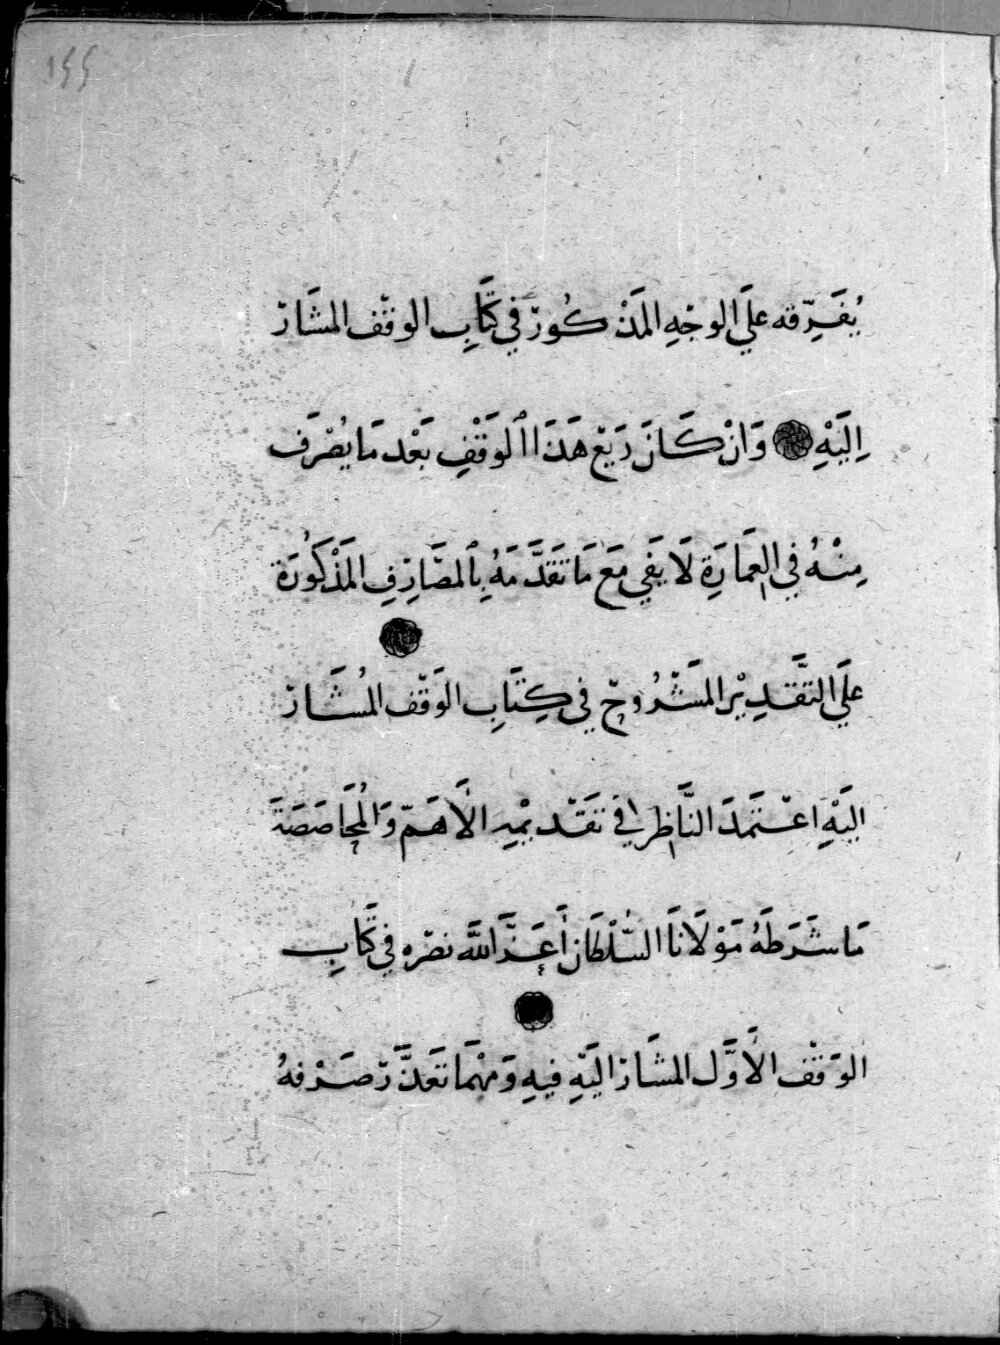 ١٤٤
يُفَرِّقه علَي الوجْهِ المَذْكُورْ في كتَابِ الوقْف المشَارْ
اِليَهْ وَانْ كَانَ رَيْع هَذَا الوَقْفِ بَعْد مَا يُصْرَف
مِنْهُ في العَمارَةِ لَا يَفي مَعَ مَا تَقَدَّمَهُ بِالمصَارِفِ المَذْكُورَة
علَي التَّقدِيْر المَشْرُوحْ في كِتَابِ الوَقْف المُشَارْ
اليَهِْ اعْتَمَدَ النَّاظِر في تَقْديْمِ الأَهَمّ وَالمُحَاصَصَة
مَا شَرَطَهُ مَوْلَانَا السُّلْطَان أَعَزَّ اللَّه نصْره في كَتَابِ
الوَقْف الأَوَّل المشَارْ اليَهِْ فيهِ وَمهْمَا تَعَذَّرْ صَرْفهُ